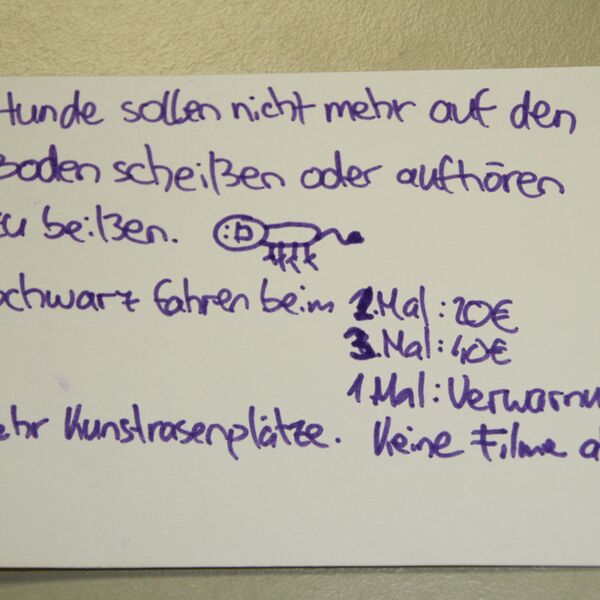 Hunde sollen nicht mehr auf den
Boden scheißen oder aufhören
zu beißen.
schwarz fahren beim 2.Mal: 20€
3.Mal: 40€
1.Mal: Verwarnu
ehr Kunstrasenplätze. Keine Filme a